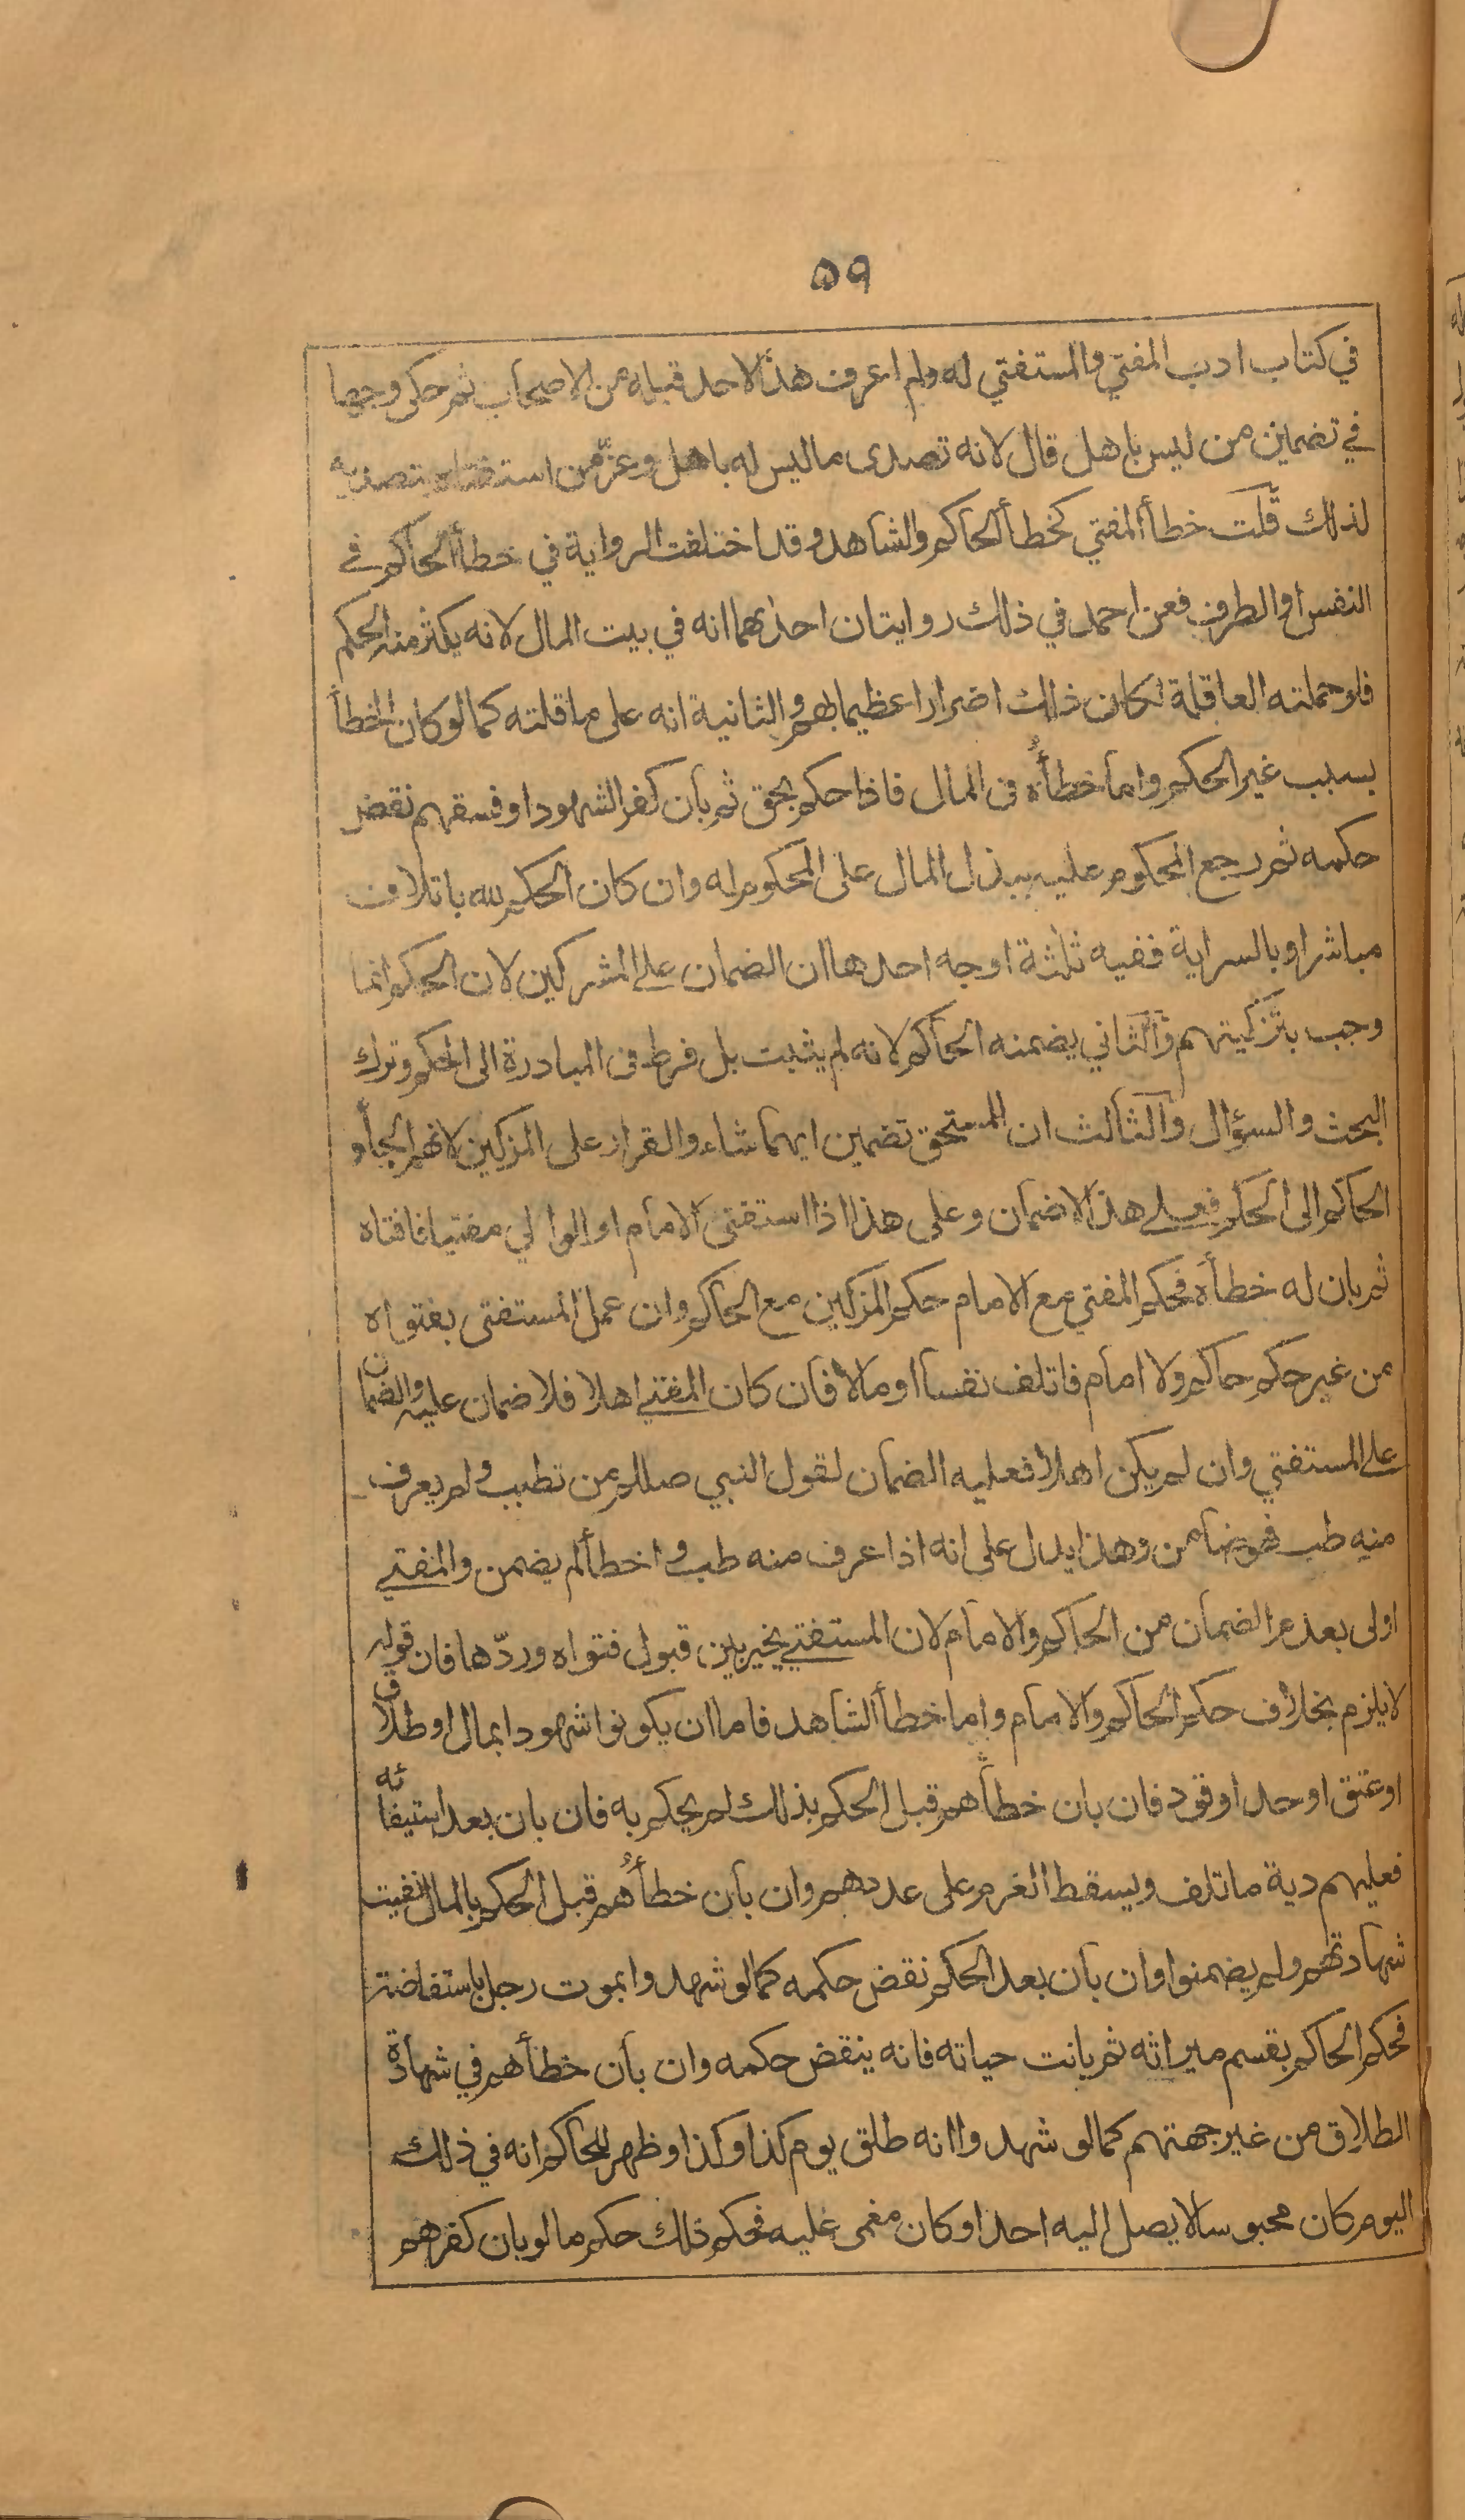 ٥٩
في كتاب ادب المفتي والمستفتي له ولم اعرف هذا لاحد قبله من الاصحاب ثم حكى وجها
في تضمين من ليس باهل قال لانه تصدى ماليس له باهل وغرّ من استفتاه بتصديه
لذلك قلت خطأ المفتي كخطأ الحاكم والشاهد وقد اختلفت الرواية في خطأ الحاكم في
النفس او الطرف فعن احمد في ذلك روايتان احدٰهما انه في بيت المال لانه يكثر منه الحكم
فلو حملته العاقلة لكان ذلك اضرارا عظيما بهم والثانية انه على عاقلته كما لو كان الخطأ
بسبب غير الحكم واما خطأُه في المال فاذا حكم بحق ثم بان كفر الشهود او فسقهم نقض
حكمه ثم رجع المحكوم عليه ببذل المال على المحكوم له وان كان الحكم لله باتلاف
مباشر او بالسراية ففيه ثلثة اوجه احدها ان الضمان على المشركين لان الحكم انما
وجب بتزكيتهم والثاني يضمنه الحاكم لانه لم يثبت بل فرط في المبادرة الى الحكم وترك
البحث والسؤال والثالث ان المستحق تضمين ايهما شاء والقرار على المزكين لانهم الجأو
الحاكم الى الحكم فعلى هذا لاضمان وعلى هذا اذا استفتى الامام او الوالي مفتيا فافتاه
ثم بان له خطأه فحكم المفتي مع الامام حكم المزكين مع الحاكم وان عمل المستفتى بفتواه
من غير حكم حاكم ولا امام فاتلف نفسا او مالا فان كان المفتي اهلا فلا ضمان عليه والضمان
على المستفتي وان لم يكن اهلا فعليه الضمان لقول النبي صللم من تطبب ولم يعرف
منه طب فهو ضامن وهذا يدل على انه اذا عرف منه طب واخطأ لم يضمن والمفتي
اولى بعدم الضمان من الحاكم والامام لان المستفتي يخير بين قبول فتواه وردّها فان قوله
لا يلزم بخلاف حكم الحاكم والامام واما خطأ الشاهد فاما ان يكونوا شهودا بمال او طلاق
او عتق او حد او قود فان بان خطأهم قبل الحكم بذلك لم يحكم به فان بان بعد استيفائه
فعليهم دية ما تلف ويسقط الغرم على عددهم وان بان خطأُهم قبل الحكم بالمال لغيت
شهادتهم ولم يضمنوا وان بان بعد الحكم نقض حكمه كما لو شهدوا بموت رجل باستفاضة
فحكم الحاكم بقسم ميراثه ثم بانت حياته فانه ينقض حكمه وان بان خطأهم في شهادة
الطلاق من غير جهتهم كما لو شهدوا انه طلق يوم كذا وكذا وظهر للحاكم انه في ذلك
اليوم كان محبوسا لا يصل اليه احد او كان مغمى عليه فحكم ذلك حكم ما لو بان كفرهم